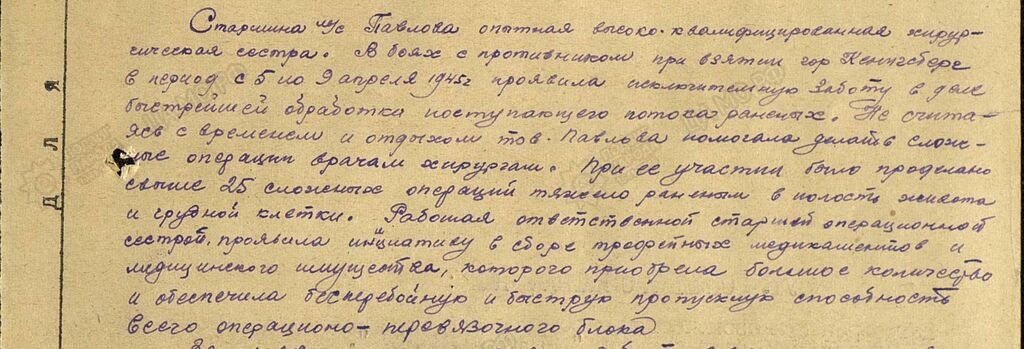 Старшина м/с Павлова опытная высоко-квалифицированная хирур-
гическая сестра. В боях с противником при взятии гор Кенигсберг
в период с 5 по 9 апреля 1945г проявила исключительную заботу в деле
быстрейшей обработка поступающего потока раненых. Не счита-
ясь с временем и отдыхом тов. Павлова помогала делать слож-
ные операции врачам хирургам. При ее участии было проделано
свыше 25 сложных операций тяжело раненым в полость живота
и грудной клетки. Работая ответственной старшей операционной
сестрой, проявила инициативу в сборе трофейных медикаментов и
медицинского имущества, которого приобрела большое количество
и обеспечила бесперебойную и быструю пропускную способность
всего операционо- перевязочного блока
Для